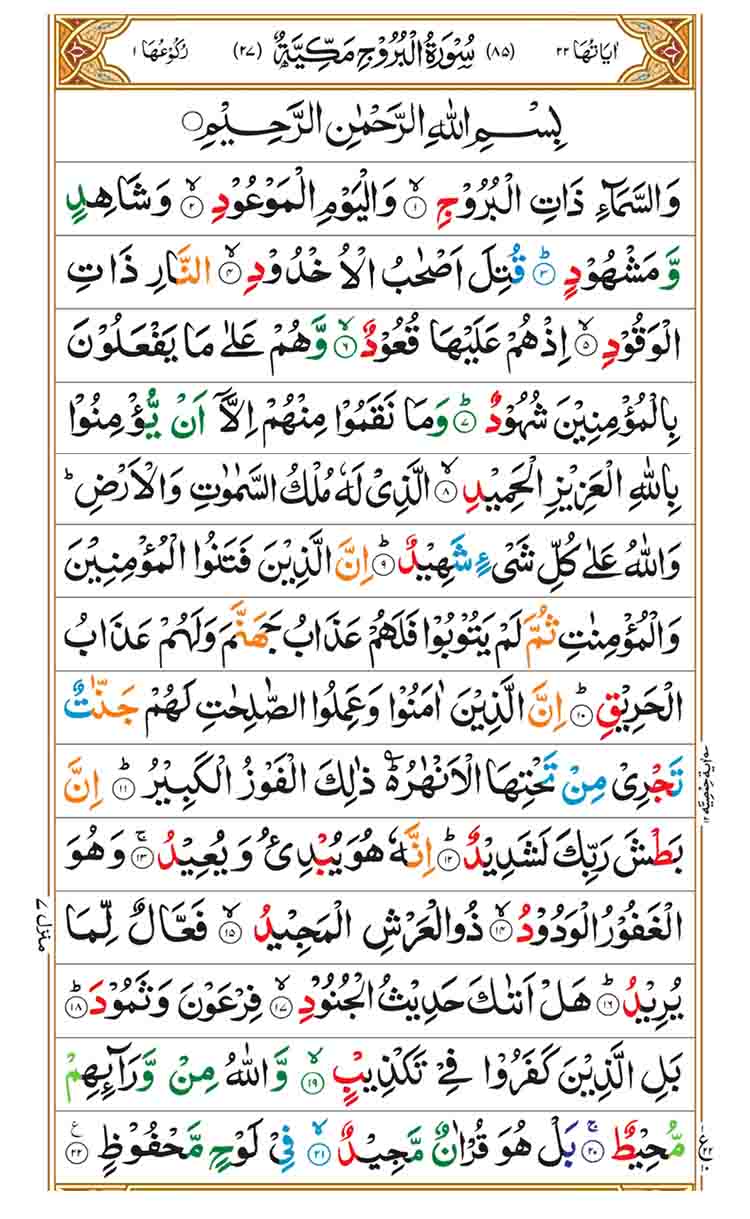 اٰيَاتُهَا ٢٢ (٨٥) سُوْرَةُ الْبُرُوْجِ مَكِّيَّةٌ (٢٧) رُكُوْعُهَا ١
بِسْمِ اللّٰهِ الرَّحْمٰنِ الرَّحِيْمِ ○
وَالسَّمَآءِ ذَاتِ الْبُرُوْجِ ۙ﴿١﴾ وَالْيَوْمِ الْمَوْعُوْدِ ۙ﴿٢﴾ وَشَاهِدٍ
وَّمَشْهُوْدٍ ؕ﴿٣﴾ قُتِلَ اَصْحٰبُ الْاُخْدُوْدِ ۙ﴿٤﴾ النَّارِ ذَاتِ
الْوَقُوْدِ ۙ﴿٥﴾ اِذْهُمْ عَلَيْهَا قُعُوْدٌ ۙ﴿٦﴾ وَّهُمْ عَلٰى مَا يَفْعَلُوْنَ
بِالْمُؤْمِنِيْنَ شُهُوْدٌ ؕ﴿٧﴾ وَمَا نَقَمُوْا مِنْهُمْ اِلَّاۤ اَنْ يُّؤْمِنُوْا
بِاللّٰهِ الْعَزِيْزِ الْحَمِيْدِ ۙ﴿٨﴾ الَّذِىْ لَهٗ مُلْكُ السَّمٰوٰتِ وَالْاَرْضِ ؕ
وَاللّٰهُ عَلٰى كُلِّ شَىْءٍ شَهِيْدٌ ؕ﴿٩﴾ اِنَّ الَّذِيْنَ فَتَنُوا الْمُؤْمِنِيْنَ
وَالْمُؤْمِنٰتِ ثُمَّ لَمْ يَتُوْبُوْا فَلَهُمْ عَذَابُ جَهَنَّمَ وَلَهُمْ عَذَابُ
الْحَرِيْقِ ؕ﴿١٠﴾ اِنَّ الَّذِيْنَ اٰمَنُوْا وَعَمِلُوا الصّٰلِحٰتِ لَهُمْ جَنّٰتٌ
تَجْرِىْ مِنْ تَحْتِهَا الْاَنْهٰرُ ۬ؕ ذٰلِكَ الْفَوْزُ الْكَبِيْرُ ؕ﴿١١﴾ اِنَّ
بَطْشَ رَبِّكَ لَشَدِيْدٌ ؕ﴿١٢﴾ اِنَّهٗ هُوَ يُبْدِئُ وَيُعِيْدُ ۚ﴿١٣﴾ وَهُوَ
الْغَفُوْرُ الْوَدُوْدُ ۙ﴿١٤﴾ ذُوالْعَرْشِ الْمَجِيْدُ ۙ﴿١٥﴾ فَعَّالٌ لِّمَا
يُرِيْدُ ؕ﴿١٦﴾ هَلْ اَتٰىكَ حَدِيْثُ الْجُنُوْدِ ۙ﴿١٧﴾ فِرْعَوْنَ وَثَمُوْدَ ؕ﴿١٨﴾
بَلِ الَّذِيْنَ كَفَرُوْا فِىْ تَكْذِيْبٍ ۙ﴿١٩﴾ وَّاللّٰهُ مِنْ وَّرَآئِهِمْ
مُّحِيْطٌ ۚ﴿٢٠﴾ بَلْ هُوَ قُرْاٰنٌ مَّجِيْدٌ ۙ﴿٢١﴾ فِىْ لَوْحٍ مَّحْفُوْظٍ ﴿٢٢﴾ ع
منزل ٧